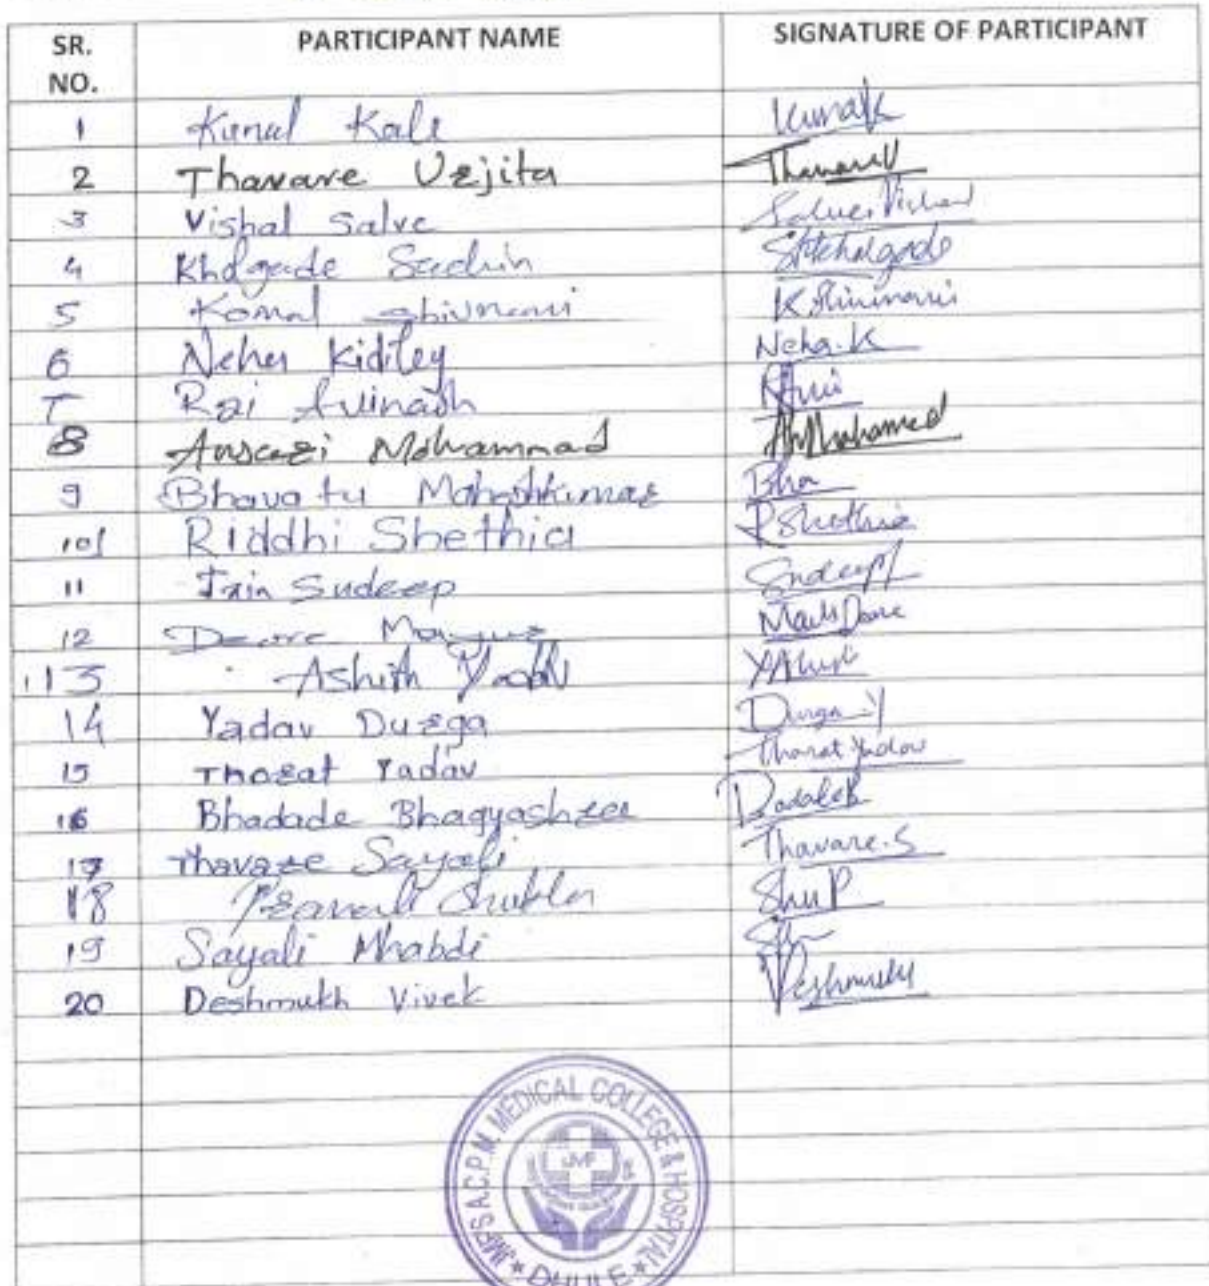 SR. NO. PARTICIPANT NAME SIGNATURE OF PARTICIPANT
1 Kunal Kale KunalK
2 Thavare Urjita ThavareU
3 Vishal Salve Salve Vishal
4 Kholgade Sachin Kholgade
5 Komal Shivnani K Shivnani
6 Neha Kiditey Neha.K
7 Rai Avinash
8 Ansari Mohammad
9 Bhavatu Maheshkumar Bha
10 Riddhi Shethia RShethia
11 Jain Sudeep Sudeep
12 Deore Mayur Deore
13 Ashith Yadav
14 Yadav Durga Durga Y
15 Thorat Yadav Thorat Yadav
16 Bhadade Bhagyashree
17 Thavare Sayali Thavare.S
18 Pranali Shukla ShuP
19 Sayali Mhabdi
20 Deshmukh Vivek Deshmukh
JMF'S A.C.P.M. MEDICAL COLLEGE & HOSPITAL
JMF
* DHULE *